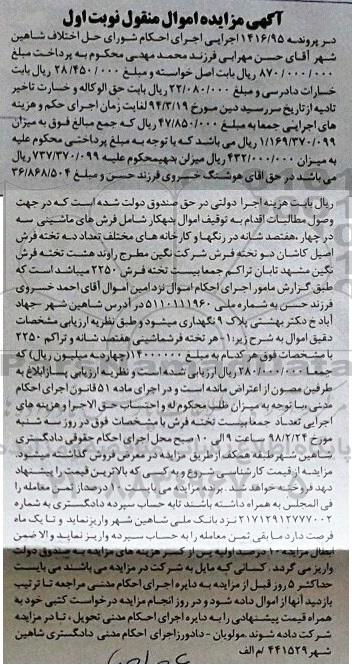 آگهی مزایده اموال منقول نوبت اول
در پرونده ۱۴۱۶/۹۵ اجرایی اجرای احکام شورای حل اختلاف شاهین
شهر آقای حسن مهرابی فرزند محمد مهدی محکوم به پرداخت مبلغ
۸۷۰/۰۰۰/۰۰۰ ریال بابت اصل خواسته و مبلغ ۲۸/۴۵۰/۰۰۰ ریال بابت
خسارات دادرسی و مبلغ ۲۲/۰۸۰/۰۰۰ ریال بابت حق الوکاله و خسارت تاخیر
تادیه از تاریخ سررسید دین مورخ ۹۴/۳/۱۹ لغایت زمان اجرای حکم و هزینه
های اجرایی جمعا به مبلغ ۴۷/۸۵۰/۰۰۰ ریال که جمع مبالغ فوق به میزان
۱/۱۶۹/۳۷۰/۰۹۹ ریال می باشد که با توجه به مبلغ پرداختی محکوم علیه
به میزان ۴۳۲/۰۰۰/۰۰۰ ریال میزان بدهی محکوم علیه ۷۳۷/۳۷۰/۰۹۹ ریال
می باشد در حق آقای هوشنگ خسروی فرزند حسن و مبلغ ۳۶/۸۶۸/۵۰۴
ریال بابت هزینه اجرا دولتی در حق صندوق دولت شده است که در جهت
وصول مطالبات اقدام به توقیف اموال بدهکار شامل فرش های ماشینی سه
در چهار، هفتصد شانه در رنگها و کارخانه های مختلف تعداد ده تخته فرش
اصیل کاشان دو تخته فرش شرکت نگین مطرح راوند هشت تخته فرش
نگین مشهد تابان تراکم جمعا بیست تخته فرش ۲۲۵۰ میباشد است که
طبق گزارش مامور اجرای احکام اموال نزد امین اموال آقای احمد خسروی
فرزند حسن به شماره ملی ۵۱۱۰۱۱۱۹۶۰ در آدرس شاهین شهر -جهاد
آباد خ دکتر بهشتی پلاک ۹ نگهداری میشود و طبق نظریه ارزیابی مشخصات
دقیق اموال به شرح زیر: ۱- هر تخته فرش ماشینی هفتصد شانه و تراکم ۲۲۵۰
با مشخصات فوق هر کدام به مبلغ ۱۴۰۰۰۰۰۰ (چهارده میلیون ریال) که
جمعا ۲۸۰/۰۰۰/۰۰۰ ریال ارزیابی شده است و نظریه ارزیابی پس از ابلاغ به
طرفین مصون از اعتراض مانده است و در اجرای ماده ۵۱ قانون اجرای احکام
مدنی، با توجه به میزان طلب محکوم له و احتساب حق الاجرا و هزینه های
اجرایی تعداد جمعا بیست تخته فرش با مشخصات فوق در روز سه شنبه
مورخ ۹۸/۲/۲۴ ساعت ۹ الی ۱۰ صبح محل اجرای احکام حقوقی دادگستری
شاهین شهر طبقه همکف از طریق مزایده در معرض فروش گذاشته میشود.
مزایده از قیمت کارشناسی شروع و به کسی که بالاترین قیمت را پیشنهاد
دهد فروخته خواهد شد. برنده مزایده می بایست ۱۰ درصد از ثمن معامله را
فی المجلس به همراه داشته باشند تا به حساب سپرده دادگستری به شماره
۲۱۷۱۲۹۱۲۷۷۷۰۰۲ نزد بانک ملی شاهین شهر واریز نماید و تا یک ماه
فرصت دارد مابقی ثمن معامله را به حساب سپرده واریز نماید و الا ضمن
ابطال مزایده ۱۰ درصد اولیه پس از کسر هزینه های مزایده به صندوق دولت
واریز می گردد. کسانی که مایل به شرکت در مزایده می باشند می بایست
حداکثر ۵ روز قبل از مزایده به دایره اجرای احکام مدنی مراجعه تا ترتیب
بازدید آنها از اموال داده شود و در روز انجام مزایده درخواست کتبی خود به
همراه قیمت پیشنهادی را به دایره اجرای احکام مدنی تحویل، تا در مزایده
شرکت داده شوند. مولویان - دادورز اجرای احکام مدنی دادگستری شاهین
شهر ۴۴۱۵۲۹/م الف